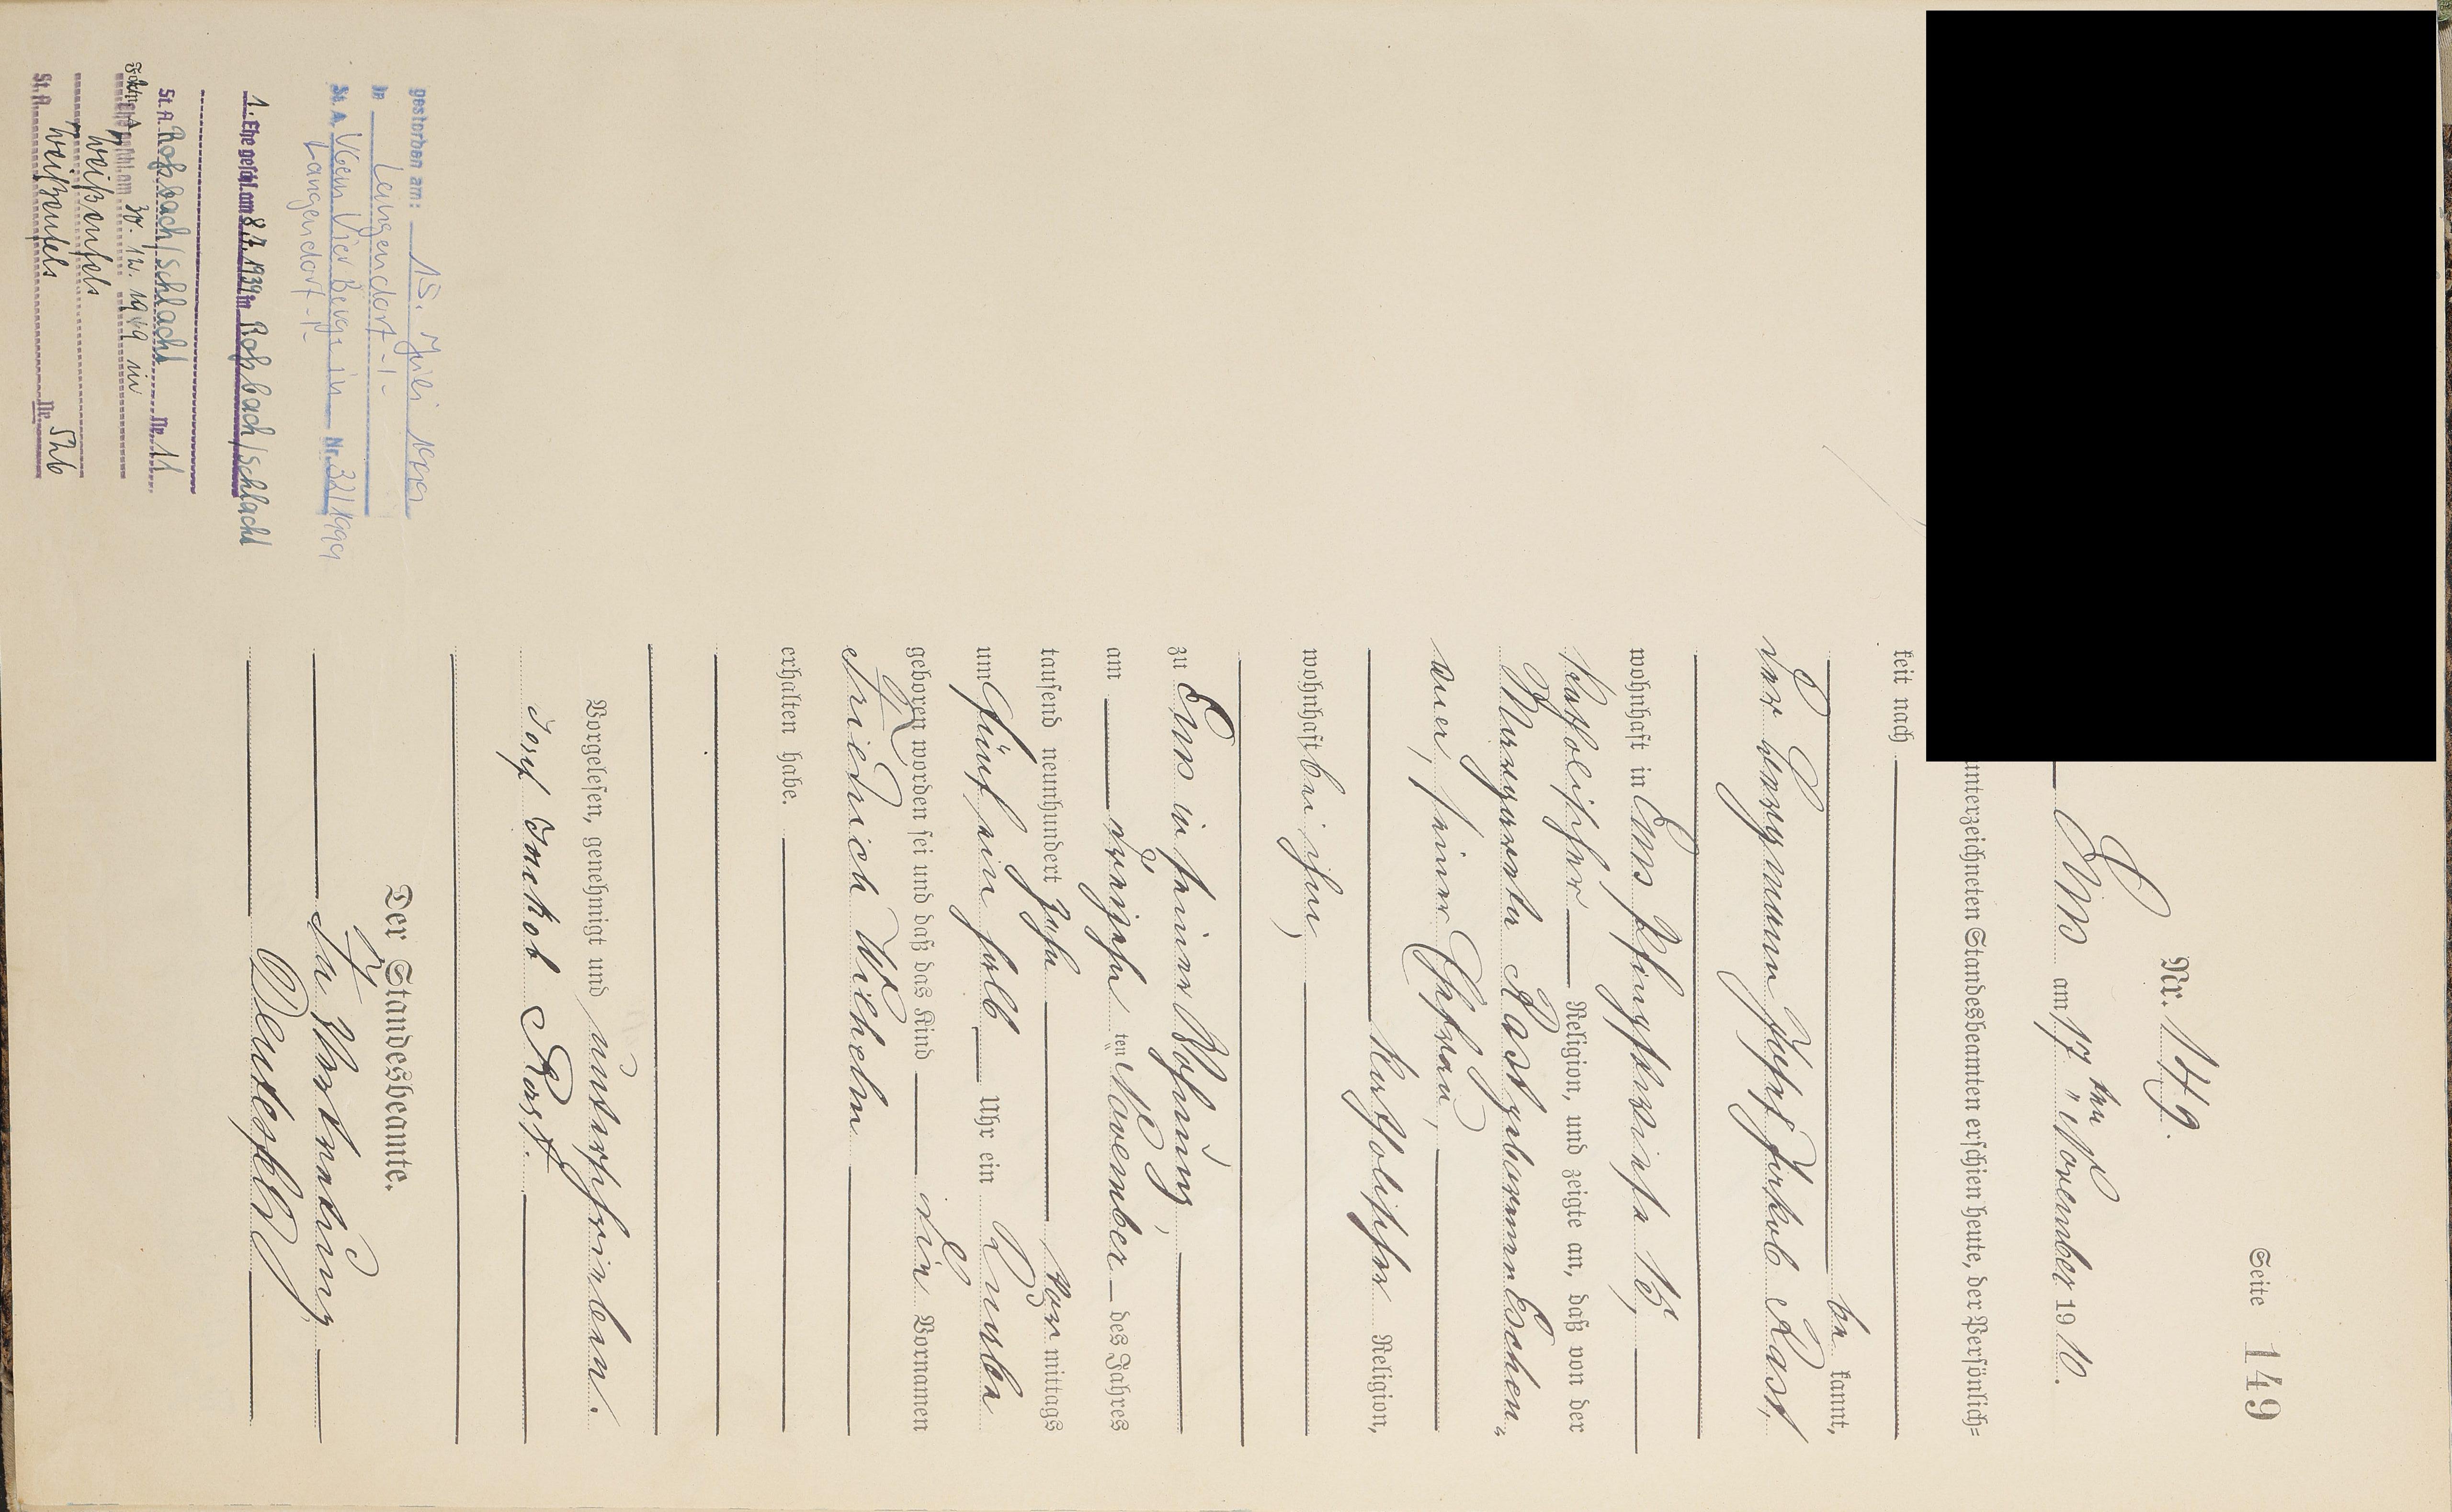 Seite 149
Nr. 149.
Ems am 17 ten November 1910.
unterzeichneten Standesbeamten erschien heute, der Persönlich=
keit nach
be kannt,
der Bergmann Josef Jakob Kast,
wohnhaft in Ems, Pfingstwiese 15,
katholischer Religion, und zeigte an, daß von der
Margareta Kast geborenen Eschen-
auer, seiner Ehefrau,
katholischer Religion,
wohnhaft bei ihm,
zu Ems in seiner Wohnung,
am dreizehn ten November des Jahres
tausend neunhundert zehn Vor mittags
um fünf ein halb Uhr ein Knabe
geboren worden sei und daß das Kind die Vornamen
Friedrich Wilhelm
erhalten habe.
Vorgelesen, genehmigt und unterschrieben.
Josef Jackob Kast.
Der Standesbeamte.
In Vertretung
gestorben am: 15. Juli 1999
in Langendorf -/-
St. A. VGem Vier Berge in Nr. 32/1999
Langendorf -/-
1. Ehe geschl. am 8.7.1939 in Roßbach/Schlacht
St. A. Roßbach/Schlacht Nr. 11
Ehe geschl. am 30. 12. 1949 in
Weißenfels
St. A. Weißenfels Nr.